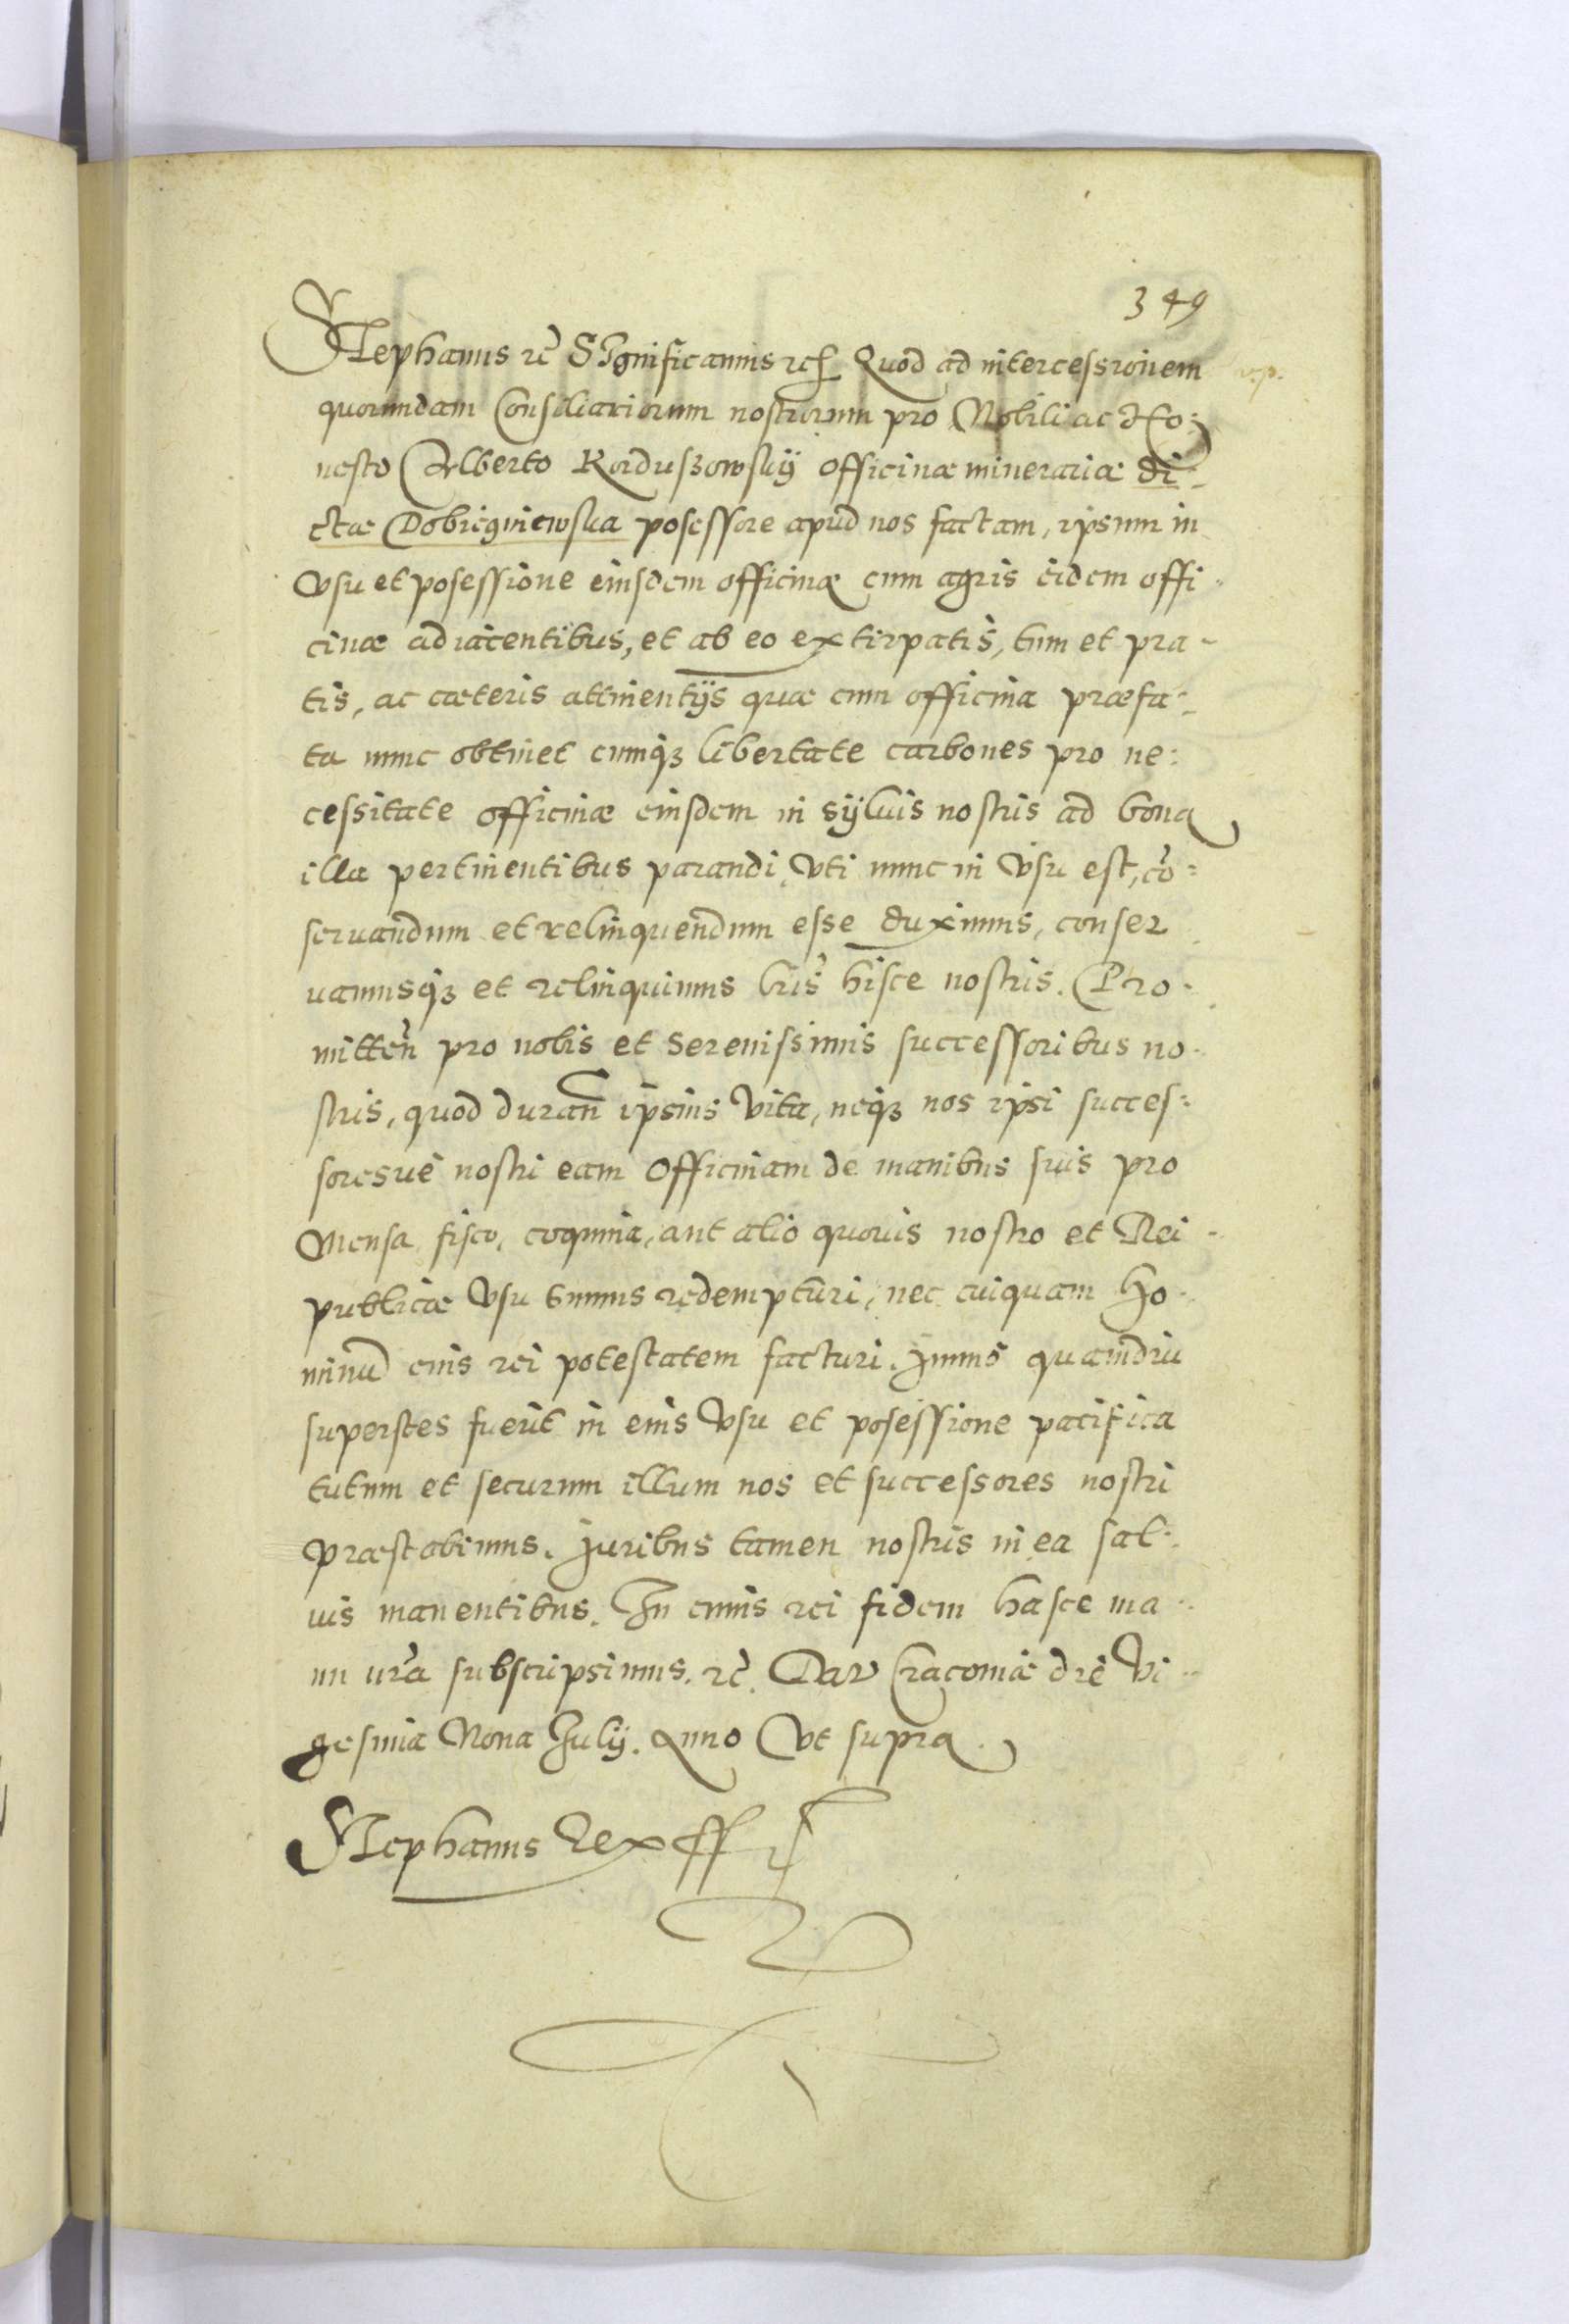 349
Stephanus rc̃ SIgnificamus rc̃ Quod ad intercessionem
quorundam Consiliariorum nostrorum pro Nobili ac Ho:
nesto Alberto Korduszowskÿ officinæ minerariæ di:
ctæ Dobiegniewska posessore apud nos factam, ipsum in
vsu et posessione eiusdem officinæ cum agris eidem offi:
cinæ adiacentibus, et ab eo extirpatis, tum et pra:
tis, ac cæteris attinentijs quæ cum officina præfa:
ta nunc obtinet cumqʒ libertate carbones pro ne:
cessitate officinæ eiusdem in sÿluis nostris ad bona
illa pertinentibus parandi, vti nunc in vsu est, cõ:
seruandum et relinquendum esse duximus, conser
uamusqʒ et relinquimus lr̃is hisce nostris. Pro:
mitteñ pro nobis et Serenissimis successoribus no:
stris, quod durañ ipsius vita, neqʒ nos ipsi succes:
soresue nostri eam Officinam de manibus suis pro
Mensa, fisco, coquina, aut alio quouis nostro et Rei
publicæ vsu sumus redempturi, nec cuiquam Ho:
minũ eius rei potestatem facturi. Immo quamdiu
superstes fuerit in eius vsu et posessione pacifica
tutum et securum illum nos et successores nostri
præstabimus. Juribus tamen nostris in ea sal:
uis manentibus. In cuius rei fidem hasce ma:
nu nr̃a subscripsimus. rc̃. Dat Cracouiæ die Vi:
gesima Nona Julij. Anno Vt supra.
Stephanus Rex ff